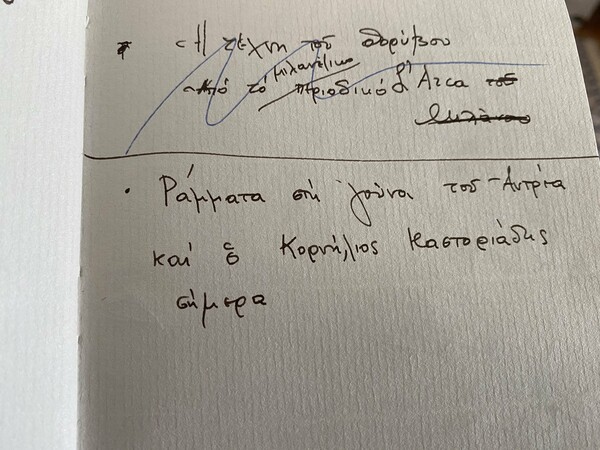 Ἡ τέχνη τοῦ θορύβου
Ἀπό τό μιλανέζικο περιοδικό L'Arca τοῦ
Μιλάνου
• Ράμματα στή γούνα τοῦ Ἀντρέα
καί ὁ Κορνήλιος Καστοριάδης
σήμερα